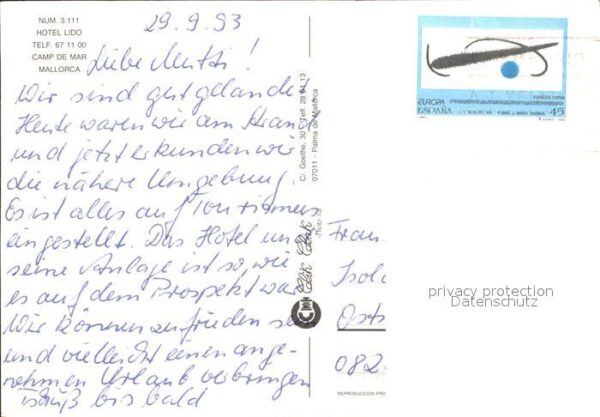 NUM. 3.111
HOTEL LIDO
TELF. 67 11 00
CAMP DE MAR
MALLORCA
29.9.93
Liebe Mutti!
Wir sind gut gelandet
Heute waren wir am Strand
und jetzt erkunden wir
die nähere Umgebung.
Es ist alles auf Tourismus
eingestellt. Das Hotel und
seine Anlage ist so, wie
es auf dem Prospekt war
Wir können zufrieden se
und vielleicht einen ange-
nehmen Urlaub verbringen
Gruß bis bald
C/. Goethe, 30
07011 - Palma de Mallorca
EUROPA
ESPAÑA
CORREOS
45
Frau
Isol
Osts
082
privacy protection
Datenschutz
REPRODUCCION PRO